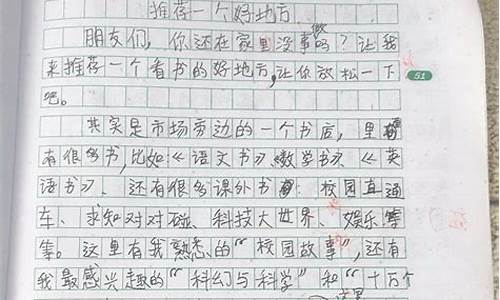 推荐一个好地方
朋友们，你还在家里没事做吗？让我
来推荐一个看书的好地方，让你放松一下
51
吧。
其实是市场旁边的一个书店，里
有很多书，比如《语文书》、《数学书》、《英
语书》、还有很多课外书：校园直通
车、求知对对碰、科技大世界、娱乐等
等。这里有我熟悉的“校园故事”，还有
我最感兴趣的“科幻与科学”和“十万个